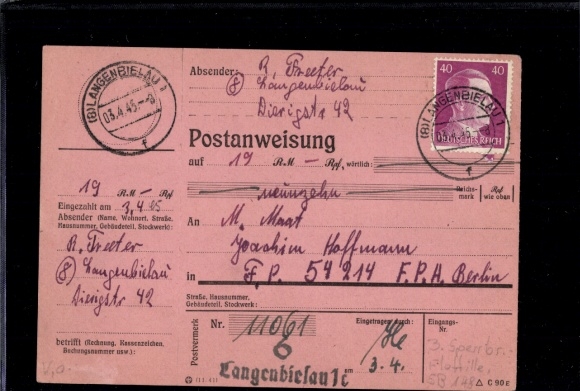 (8) LANGENBIELAU 1
03.4.45-8
f
19 RM — Rpf
Eingezahlt am 3.4.45
Absender (Name, Wohnort, Straße,
Hausnummer, Gebäudeteil, Stockwerk):
R. Treeter
(8) Langenbielau
Dierigstr 42
betrifft (Rechnung, Kassenzeichen,
Buchungsnummer usw.):
Absender: R. Treeter
(8) Langenbielau
Dierigstr 42
40 40
DEUTSCHES REICH
(8) LANGENBIELAU 1
03.4.45
f
Postanweisung
auf 19 RM — Rpf, wörtlich:
neunzehn
Reichs-
mark
Rpf
wie oben
An M. Maat
Joachim Hoffmann
in F.P. 54214 F.P.A. Berlin
Straße, Hausnummer,
Gebäudeteil, Stockwerk:
Postvermerk
Nr. 11061
6
Langenbielau 1c
Eingetragen durch:
am 3.4.
Eingangs-
Nr.
C 90 E